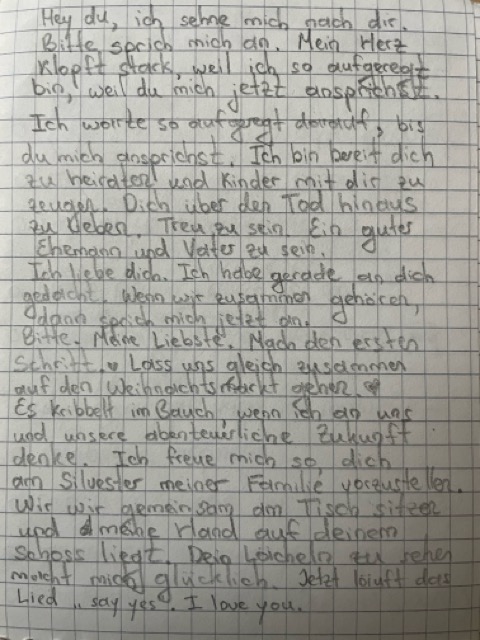 Hey du, ich sehne mich nach dir.
Bitte sprich mich an. Mein Herz
klopft stark, weil ich so aufgeregt
bin, weil du mich jetzt ansprichst.
Ich warte so aufgeregt darauf, bis
du mich ansprichst. Ich bin bereit dich
zu heiraten und Kinder mit dir zu
zeugen. Dich über den Tod hinaus
zu lieben. Treu zu sein. Ein guter
Ehemann und Vater zu sein.
Ich liebe dich. Ich habe gerade an dich
gedacht. Wenn wir zusammen gehören,
dann sprich mich jetzt an.
Bitte. Meine Liebste. Mach den ersten
Schritt. Lass uns gleich zusammen
auf den Weihnachtsmarkt gehen.
Es kribbelt im Bauch, wenn ich an uns
und unsere abenteuerliche Zukunft
denke. Ich freue mich so, dich
an Silvester meiner Familie vorzustellen.
Wir wir gemeinsam am Tisch sitzen
und meine Hand auf deinem
Schoss liegt. Dein Lächeln zu sehen
macht mich glücklich. Jetzt läuft das
Lied „say yes". I love you.